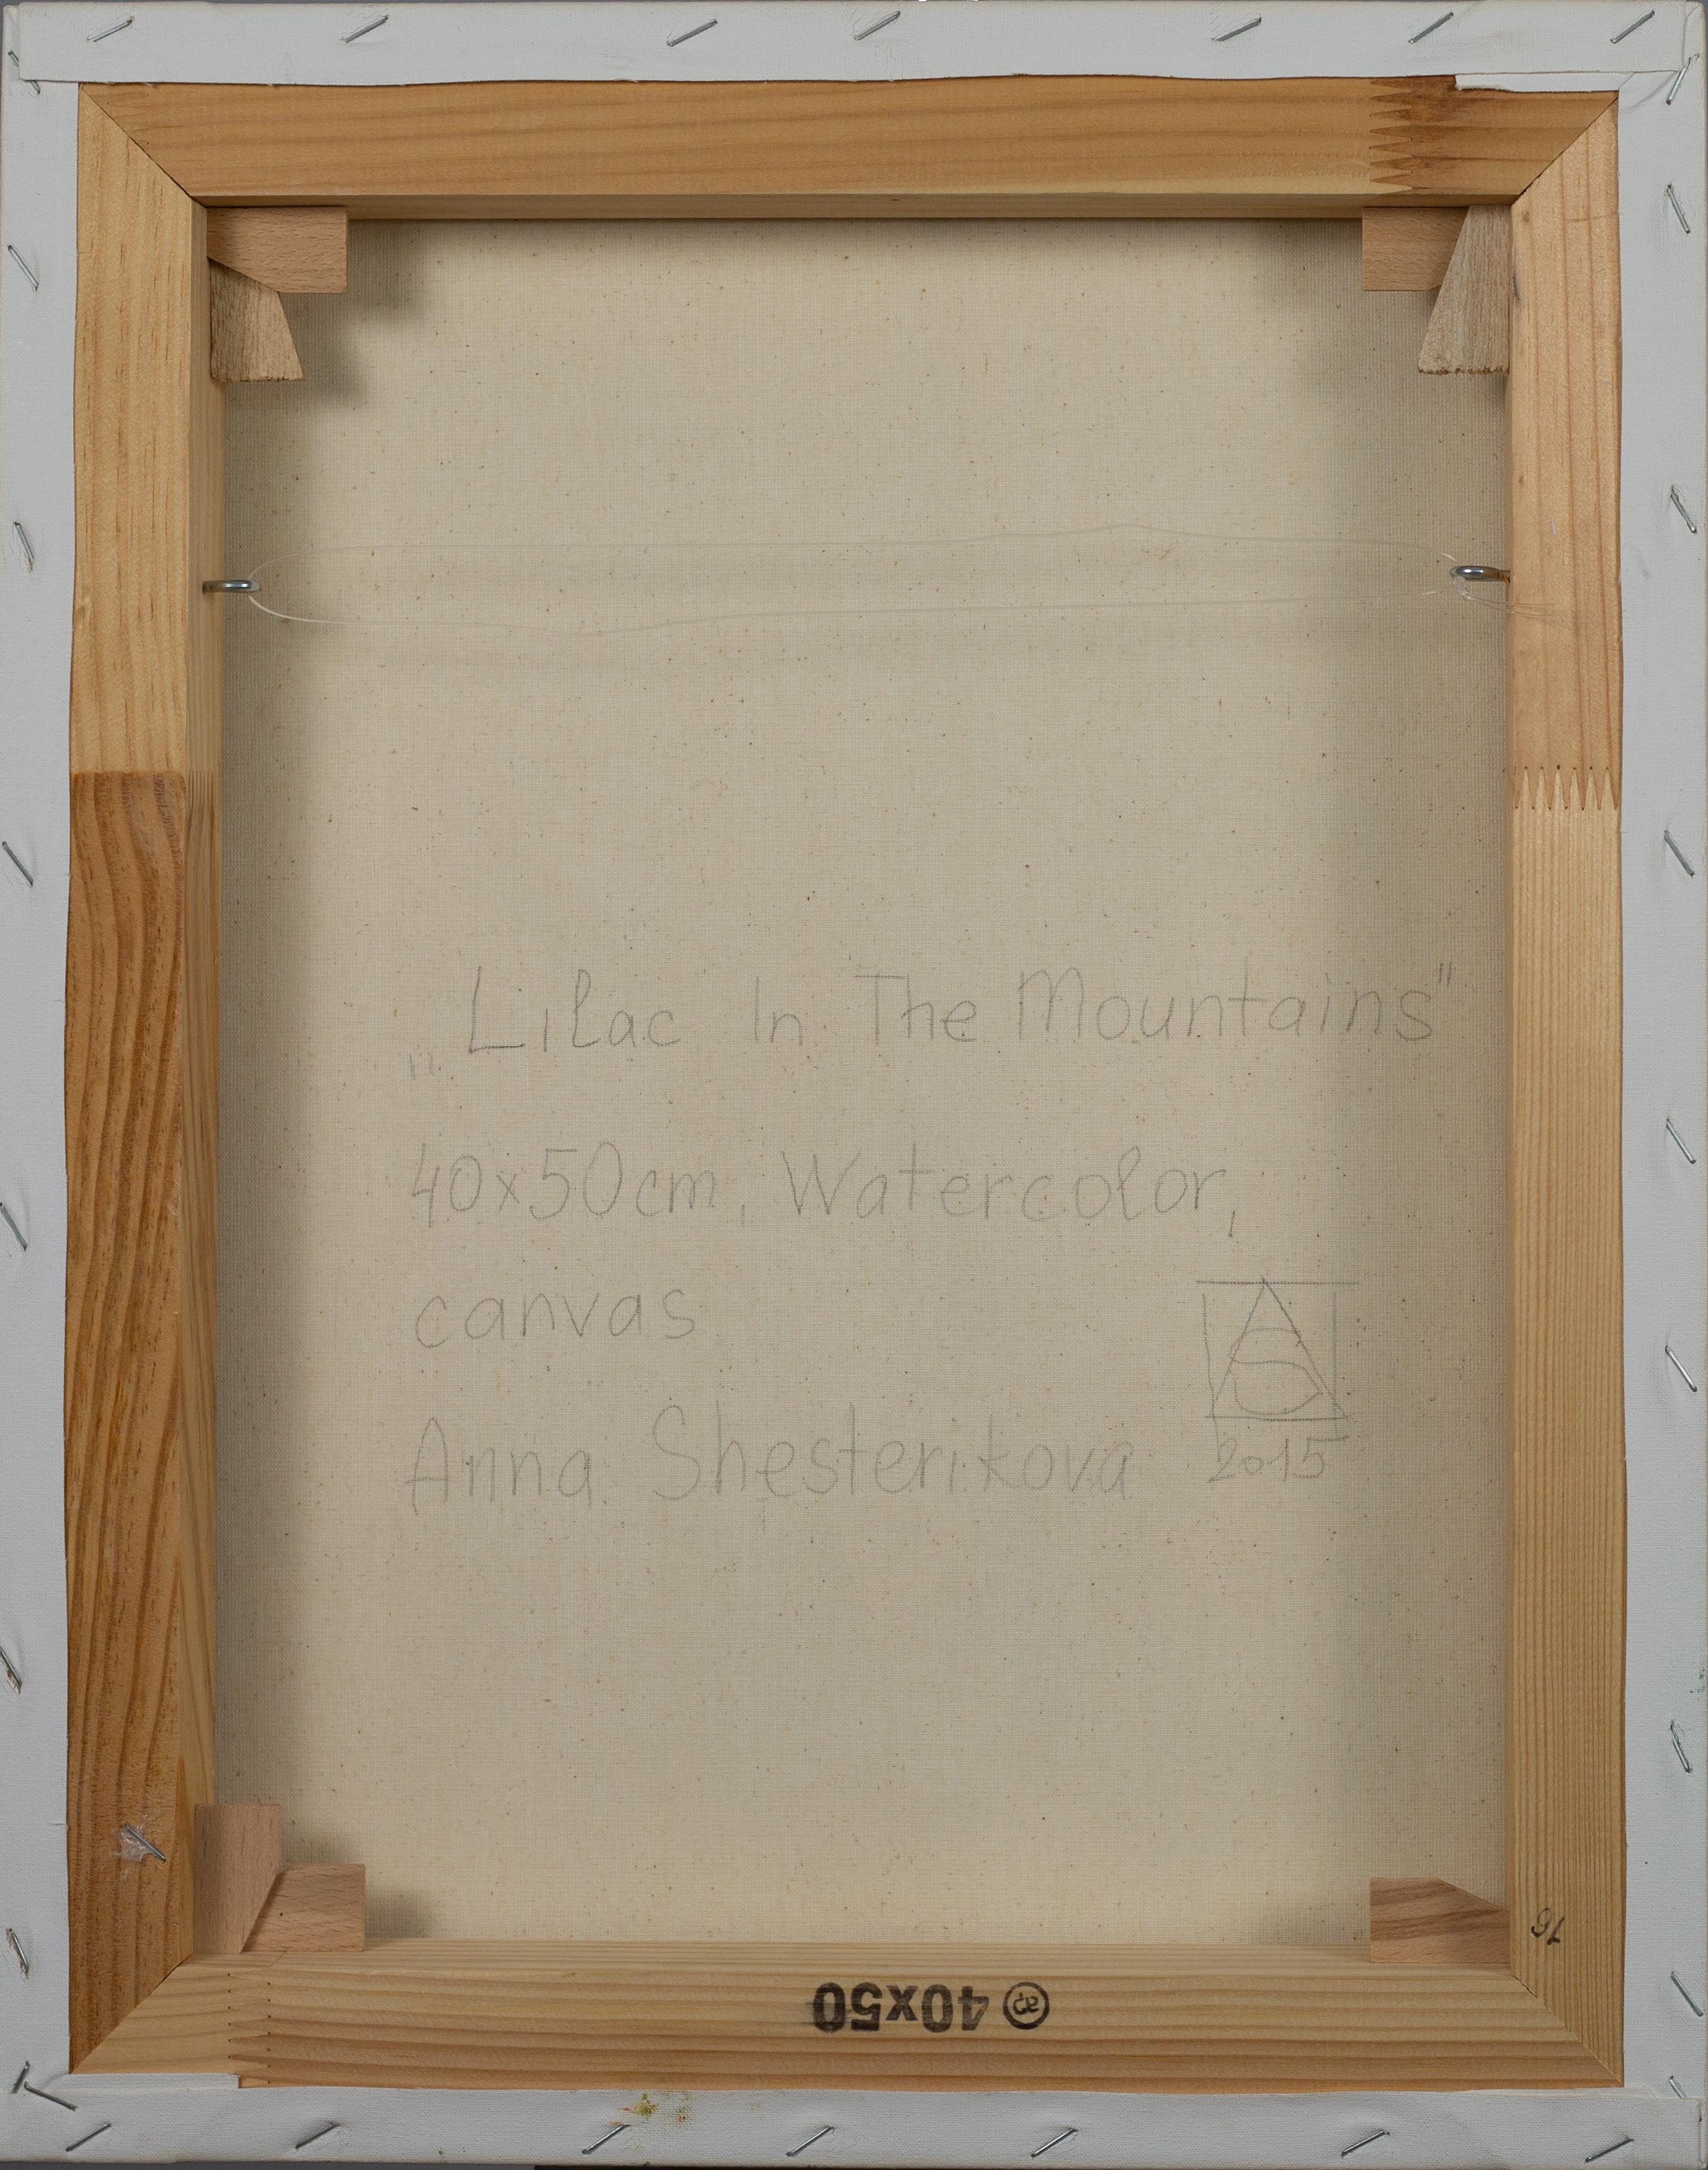 „Lilac In The Mountains"
40x50cm, Watercolor,
canvas
AS
Anna Shesterikova
2015
16
ap 40x50